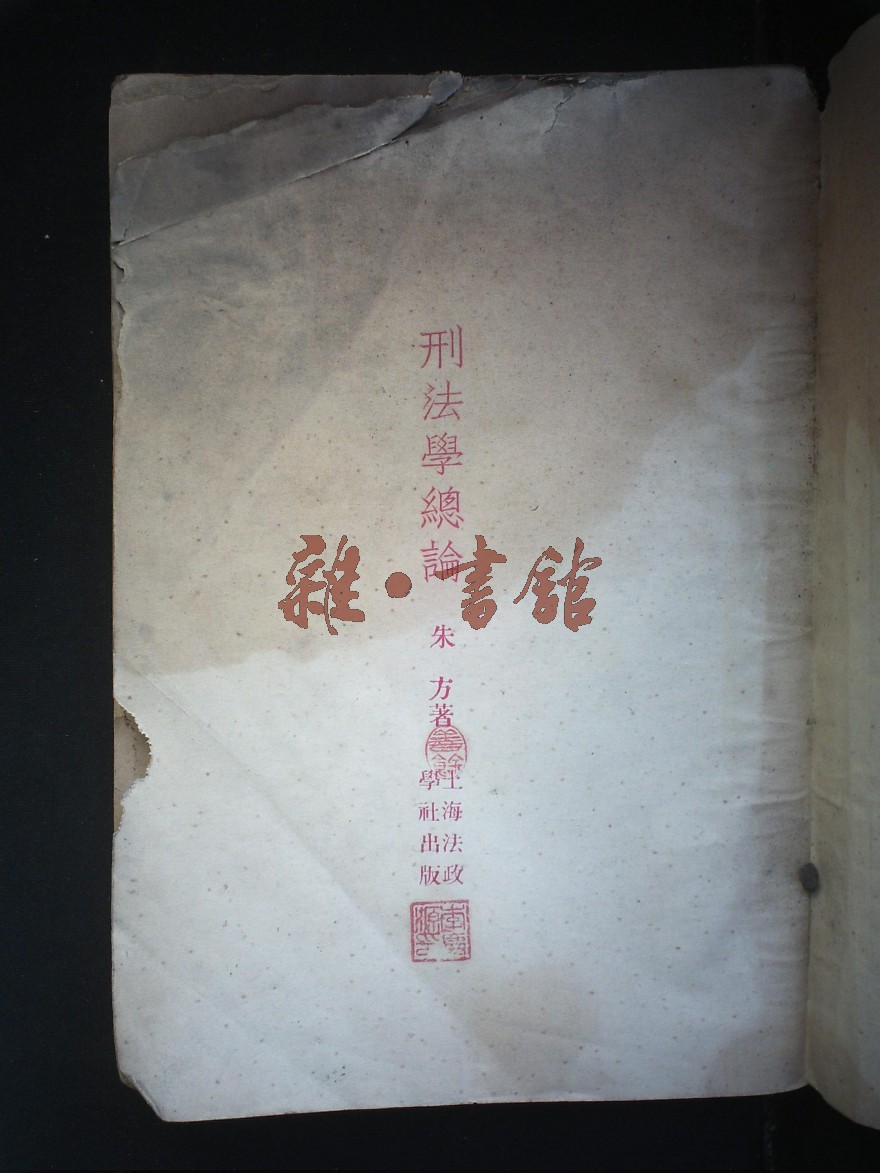 刑法學總論
朱方著
上海法政
學社出版
善餘
雜·書館